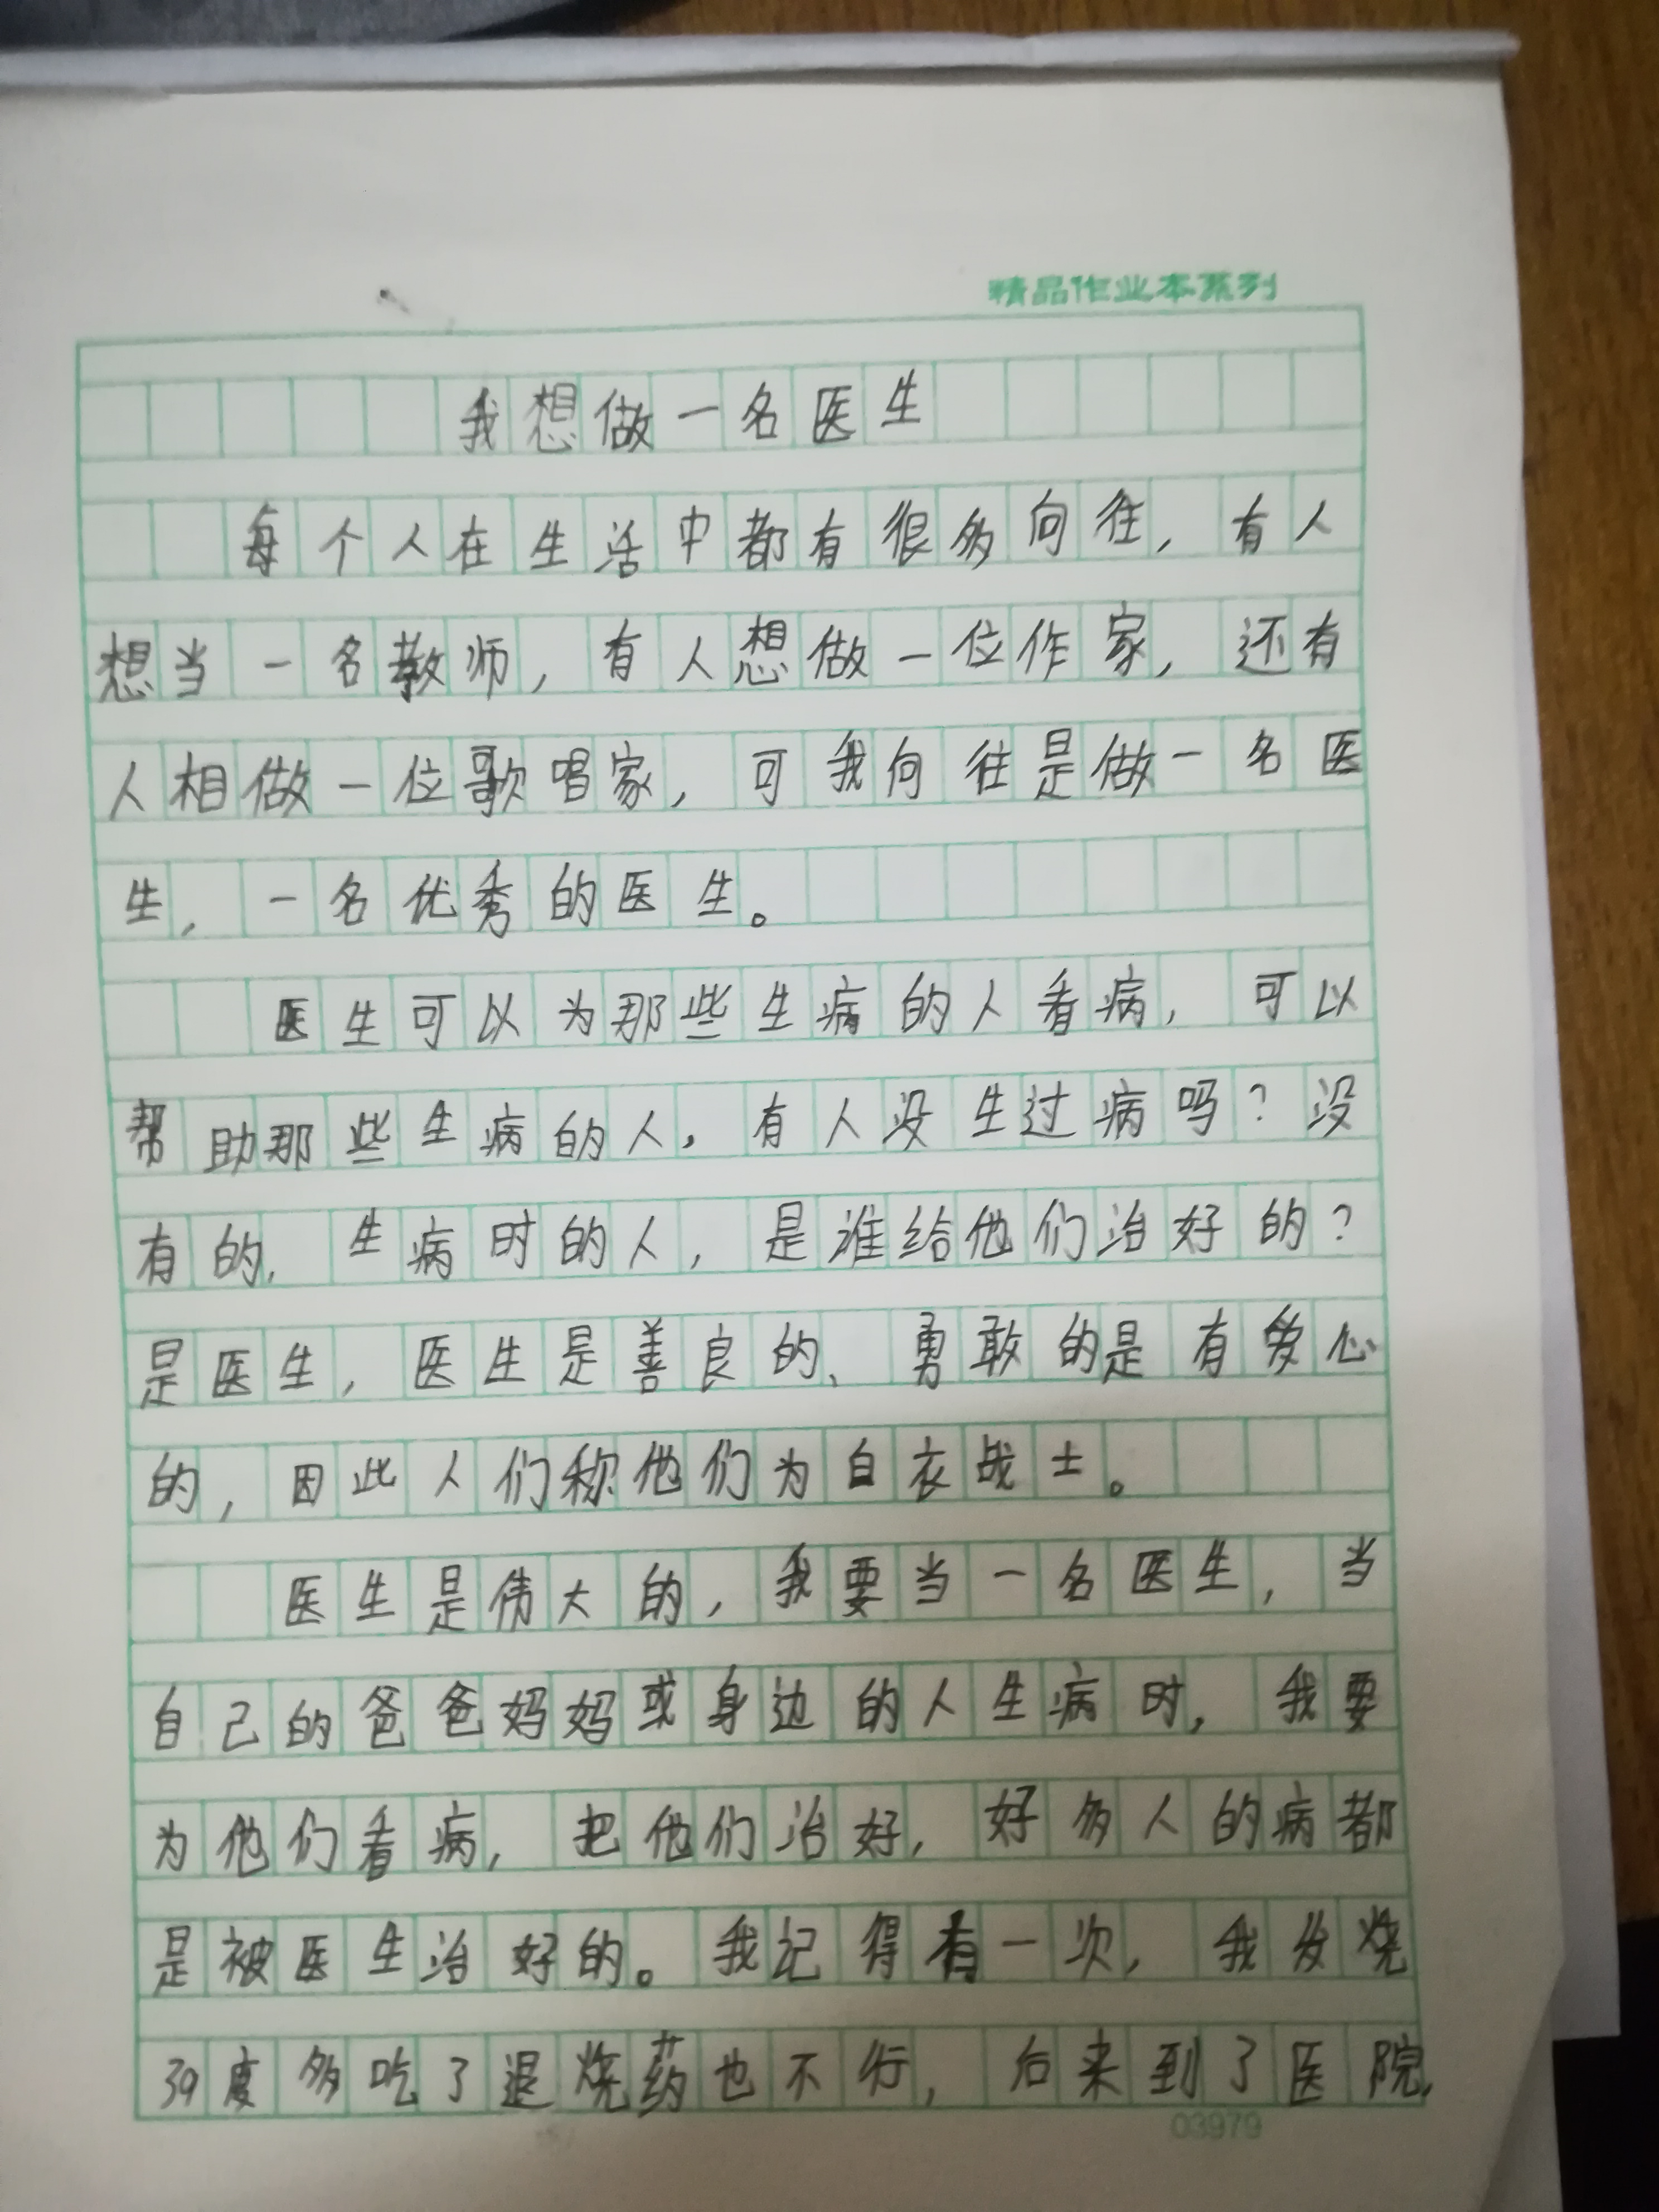 精品作业本系列
我想做一名医生
每个人在生活中都有很多向往,有人
想当一名教师,有人想做一位作家,还有
人相做一位歌唱家,可我向往是做一名医
生,一名优秀的医生。
医生可以为那些生病的人看病,可以
帮助那些生病的人,有人没生过病吗?没
有的,生病时的人,是谁给他们治好的?
是医生,医生是善良的、勇敢的是有爱心
的,因此人们称他们为白衣战士。
医生是伟大的,我要当一名医生,当
自己的爸爸妈妈或身边的人生病时,我要
为他们看病,把他们治好,好多人的病都
是被医生治好的。我记得有一次,我发烧
39度多吃了退烧药也不行,后来到了医院,
03979